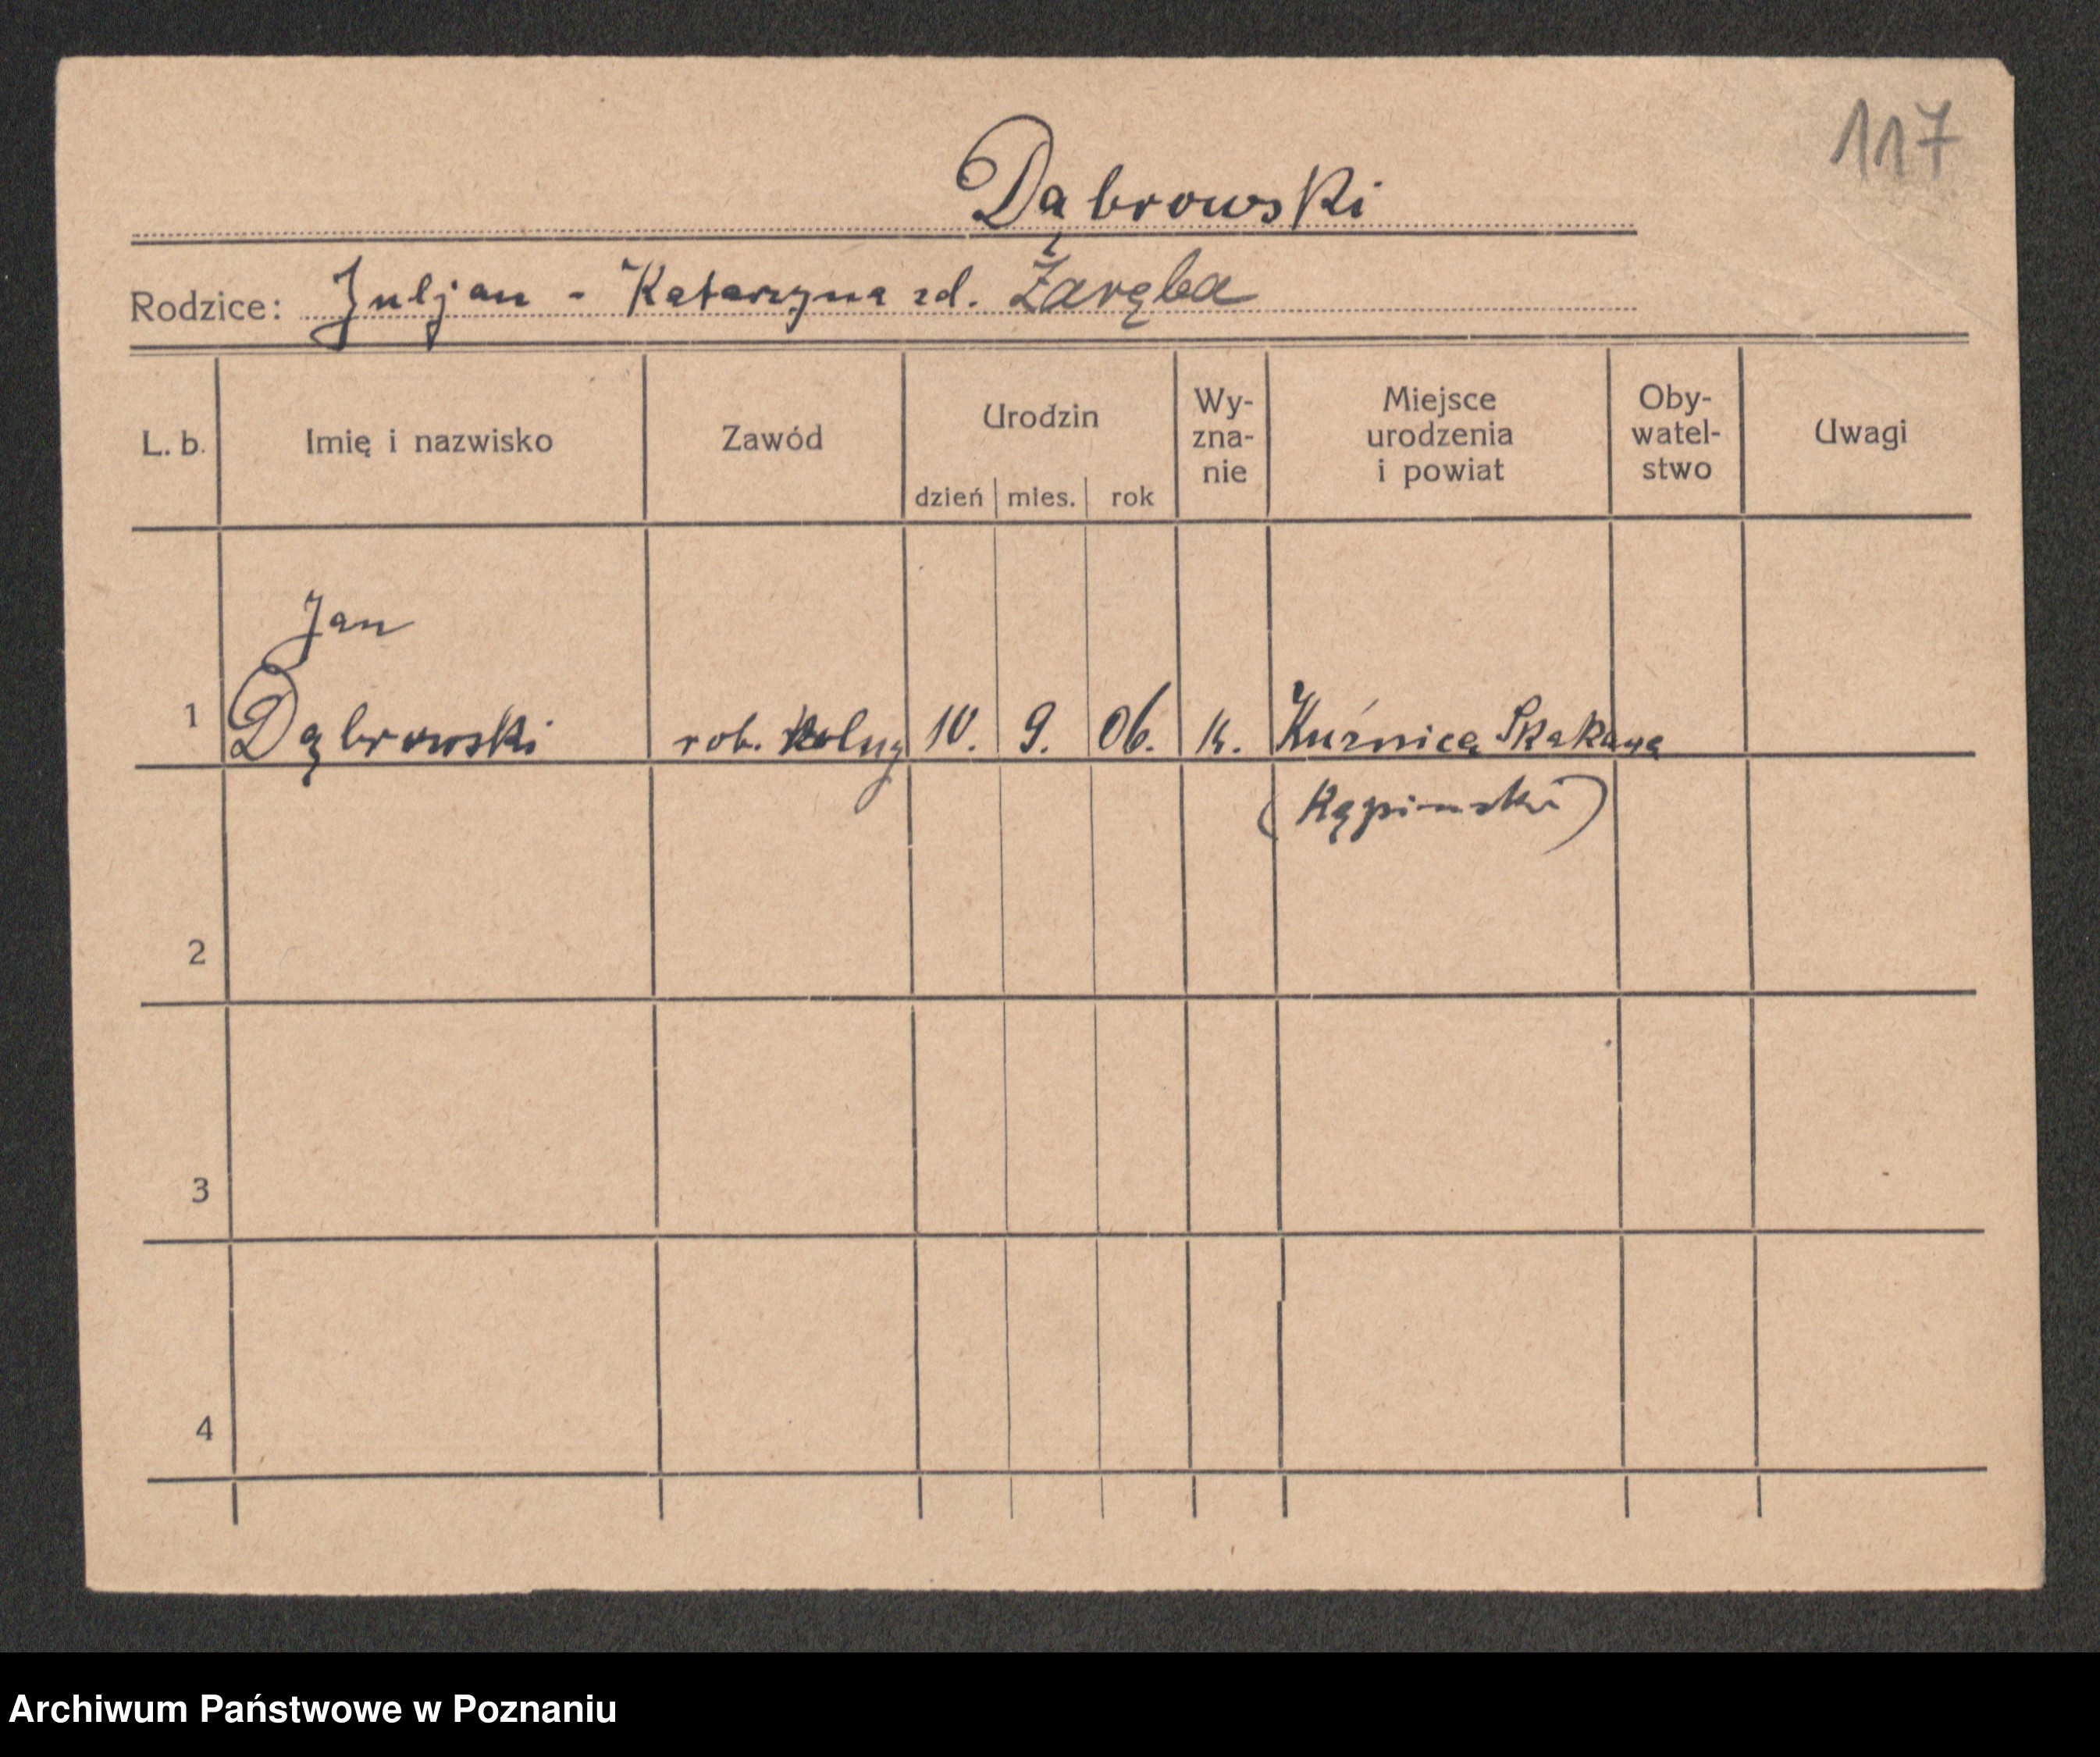 117
Dąbrowski
Rodzice: Juljan - Katarzyna zd. Zaręba
L. b. Imię i nazwisko Zawód Urodzin dzień mies. rok Wy-zna-nie Miejsce urodzenia i powiat Oby-watel-stwo Uwagi
Jan
1 Dąbrowski rob. rolny 10. 9. 06. k. Kuźnica Skakawa
(Kępiński)
2
3
4
Archiwum Państwowe w Poznaniu